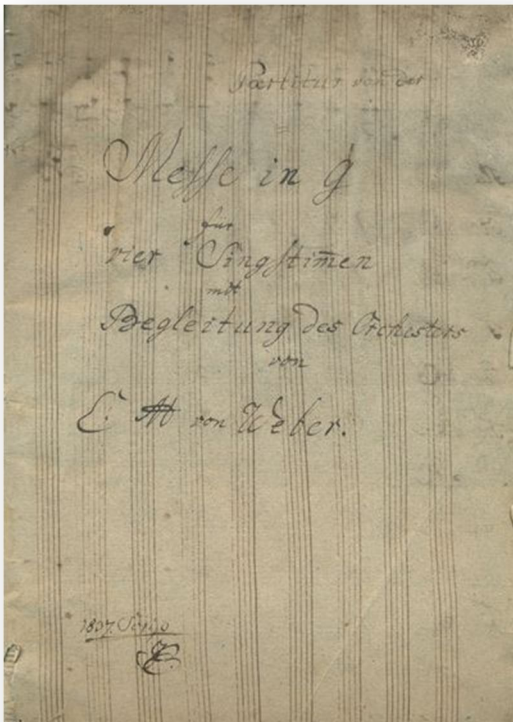 Partitur von der
Messe in g
für
vier Singstim̄en
mit
Begleitung des Orchesters
von
C. M von Weber.